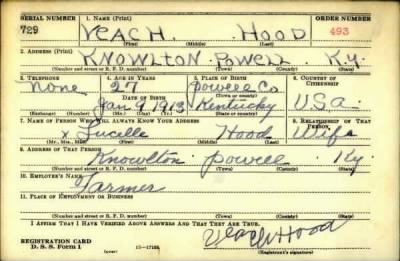 SERIAL NUMBER 1. NAME (Print) ORDER NUMBER
729 VEACH. HOOD 493
(First) (Middle) (Last)
2. ADDRESS (Print)
KNOWLTON POWELL Ky.
(Number and street or R. F. D. number) (Town) (County) (State)
3. TELEPHONE 4. AGE IN YEARS 5. PLACE OF BIRTH 6. COUNTRY OF CITIZENSHIP
none 27 Powell Co
DATE OF BIRTH (Town or county)
Jan 9, 1913 Kentucky U.S.A.
(Exchange) (Number) (Mo.) (Day) (Yr.) (State or country)
7. NAME OF PERSON WHO WILL ALWAYS KNOW YOUR ADDRESS 8. RELATIONSHIP OF THAT PERSON
x Lucille Hood Wife
(Mr., Mrs., Miss) (First) (Middle) (Last)
9. ADDRESS OF THAT PERSON
Knowlton Powell Ky
(Number and street or R. F. D. number) (Town) (County) (State)
10. EMPLOYER'S NAME
Farmer
11. PLACE OF EMPLOYMENT OR BUSINESS
(Number and street or R. F. D. number) (Town) (County) (State)
I AFFIRM THAT I HAVE VERIFIED ABOVE ANSWERS AND THAT THEY ARE TRUE.
REGISTRATION CARD
D. S. S. Form 1 Veach Hood
(Registrant's signature)